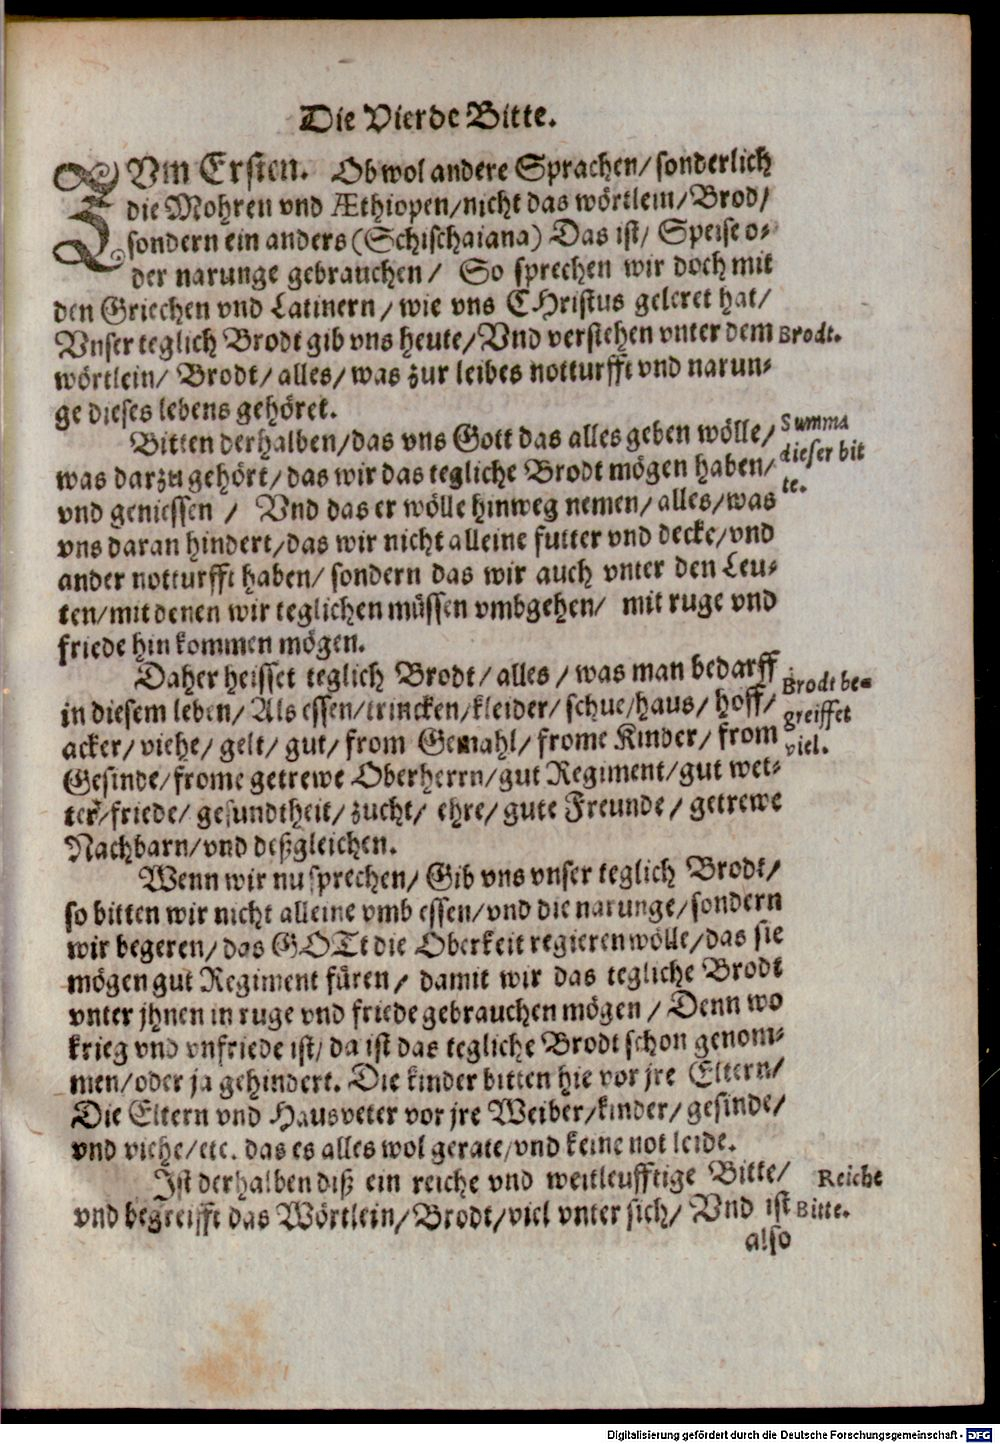 Die Vierde Bitte.
ZVm Ersten. Ob wol andere Sprachen/ sonderlich
die Mohren vnd Æthiopen/nicht das wörtlein/Brod/
sondern ein anders (Schischaiana) Das ist/ Speise o-
der narunge gebrauchen/ So sprechen wir doch mit
den Griechen vnd Latinern/ wie vns CHristus geleret hat/
Vnser teglich Brodt gib vns heute/Vnd verstehen vnter dem
Brodt.
wörtlein/ Brodt/ alles/ was zur leibes notturfft vnd narun-
ge dieses lebens gehöret.
Bitten derhalben/das vns Gott das alles geben wölle/
Summa
dieser bit
te.
was darzu gehört/das wir das tegliche Brodt mögen haben/
vnd geniessen / Vnd das er wölle hinweg nemen/ alles/was
vns daran hindert/das wir nicht alleine futter vnd decke/vnd
ander notturfft haben/ sondern das wir auch vnter den Leu-
ten/mit denen wir teglichen müssen vmbgehen/ mit ruge vnd
friede hin kommen mögen.
Daher heisset teglich Brodt/ alles / was man bedarff
Brodt be-
greiffet
viel.
in diesem leben/ Als essen/trincken/kleider/ schue/haus/ hoff/
acker/ viehe/ gelt/ gut/ from Gemahl/ frome Kinder/ from
Gesinde/frome getrewe Oberherrn/gut Regiment/gut wet-
ter/friede/ gesundtheit/ zucht/ ehre/ gute Freunde/ getrewe
Nachbarn/vnd deßgleichen.
Wenn wir nu sprechen/ Gib vns vnser teglich Brodt/
so bitten wir nicht alleine vmb essen/vnd die narunge/sondern
wir begeren/das GOTt die Oberkeit regieren wölle/das sie
mögen gut Regiment füren/ damit wir das tegliche Brodt
vnter jhnen in ruge vnd friede gebrauchen mögen / Denn wo
krieg vnd vnfriede ist/ da ist das tegliche Brodt schon genom-
men/oder ja gehindert. Die kinder bitten hie vor jre Eltern/
Die Eltern vnd Hausveter vor jre Weiber/kinder/ gesinde/
vnd viehe/etc. das es alles wol gerate/vnd keine not leide.
Ist derhalben diß ein reiche vnd weitleufftige Bitte/
Reiche
Bitte.
vnd begreifft das Wörtlein/ Brodt/viel vnter sich/ Vnd ist
also
Digitalisierung gefördert durch die Deutsche Forschungsgemeinschaft - DFG